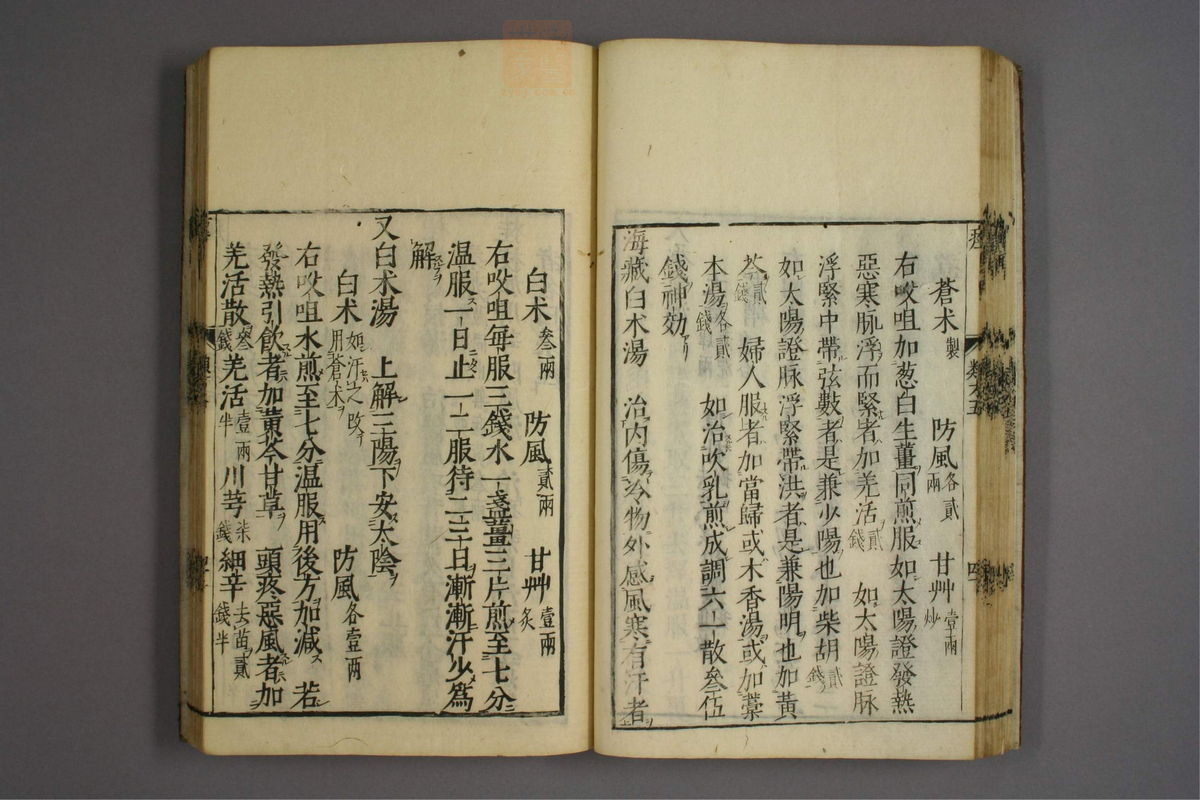 蒼朮製　防風各貳兩　甘艸壹兩炒
右㕮咀加葱白生薑同煎服如太陽證發熱
惡寒脉浮而緊者加羌活貳錢　如太陽證脉
浮緊中帶弦數者是兼少陽也加柴胡貳錢
如太陽證脉浮緊帶洪者是兼陽明也加黃
芩貳錢　婦人服者加當歸或木香湯或加藁
本湯各貳錢　如治吹乳煎成調六一散叄伍
錢神効
海藏白朮湯　治內傷冷物外感風寒有汗者
白朮叄兩　防風貳兩　甘艸壹兩炙
右㕮咀每服三錢水一盞薑三片煎至七分
温服一日止一二服待二三日漸漸汗少爲
解
又白朮湯　上解三陽下安太陰
白朮如汗之改用蒼朮　防風各壹兩
右㕮咀水煎至七分温服用後方加減　若
發熱引飲者加黃芩甘草　頭疼惡風者加
羌活散叄錢羌活壹兩半川芎柒錢細辛去苗貳錢半